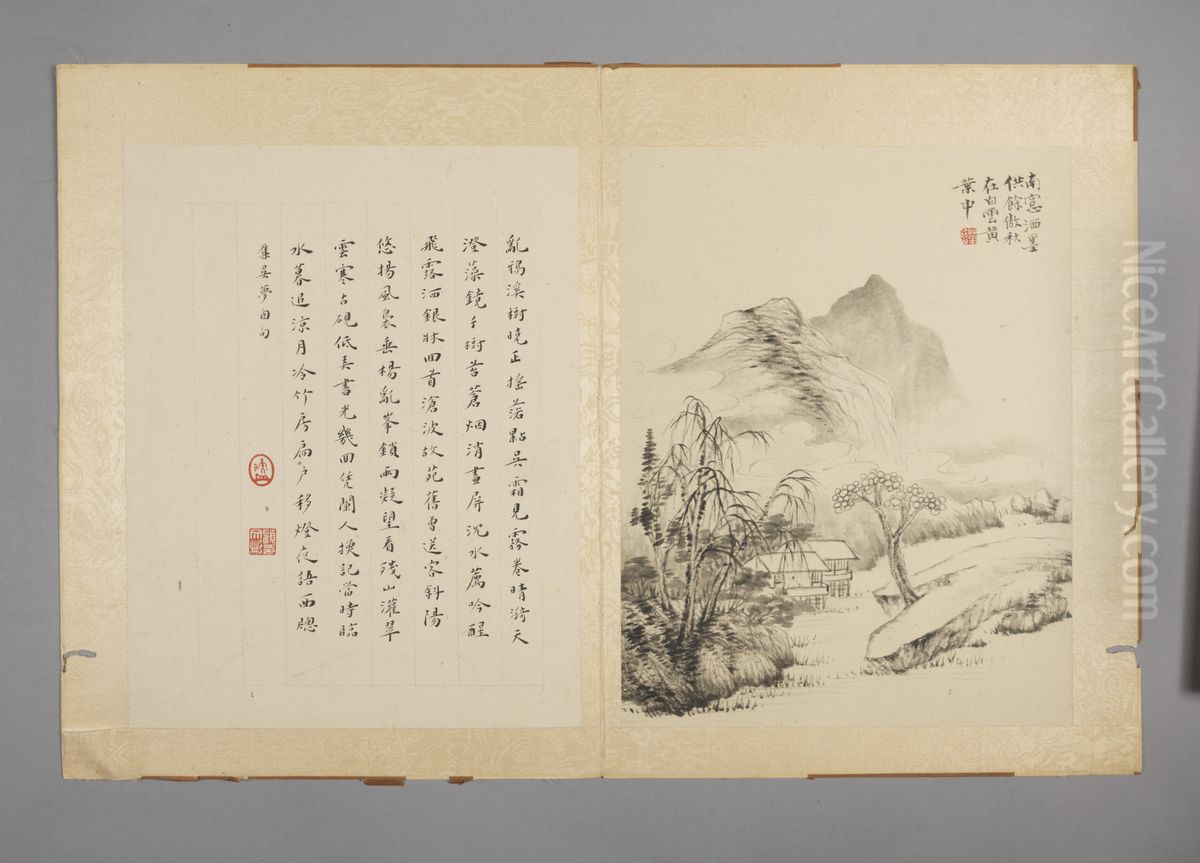 南窓洒墨
供餘傲秋
在白雲黃
葉中
亂鴉溪樹曉正搖落點吳霜見霧卷晴漪天
澄藻鏡千樹苔蒼烟消畫屏沉水薦吟醒
飛露洒銀牀回首滄波故苑舊曾送客斜陽
悠揚風裊垂楊亂峯鎖雨凝望看殘山濯翠
雲寒古硯低弄書光幾回凭闌人換記當時臨
水暮追涼月冷竹房扃戶移燈夜語西牕
集吳夢窗句
NiceArtGallery.com